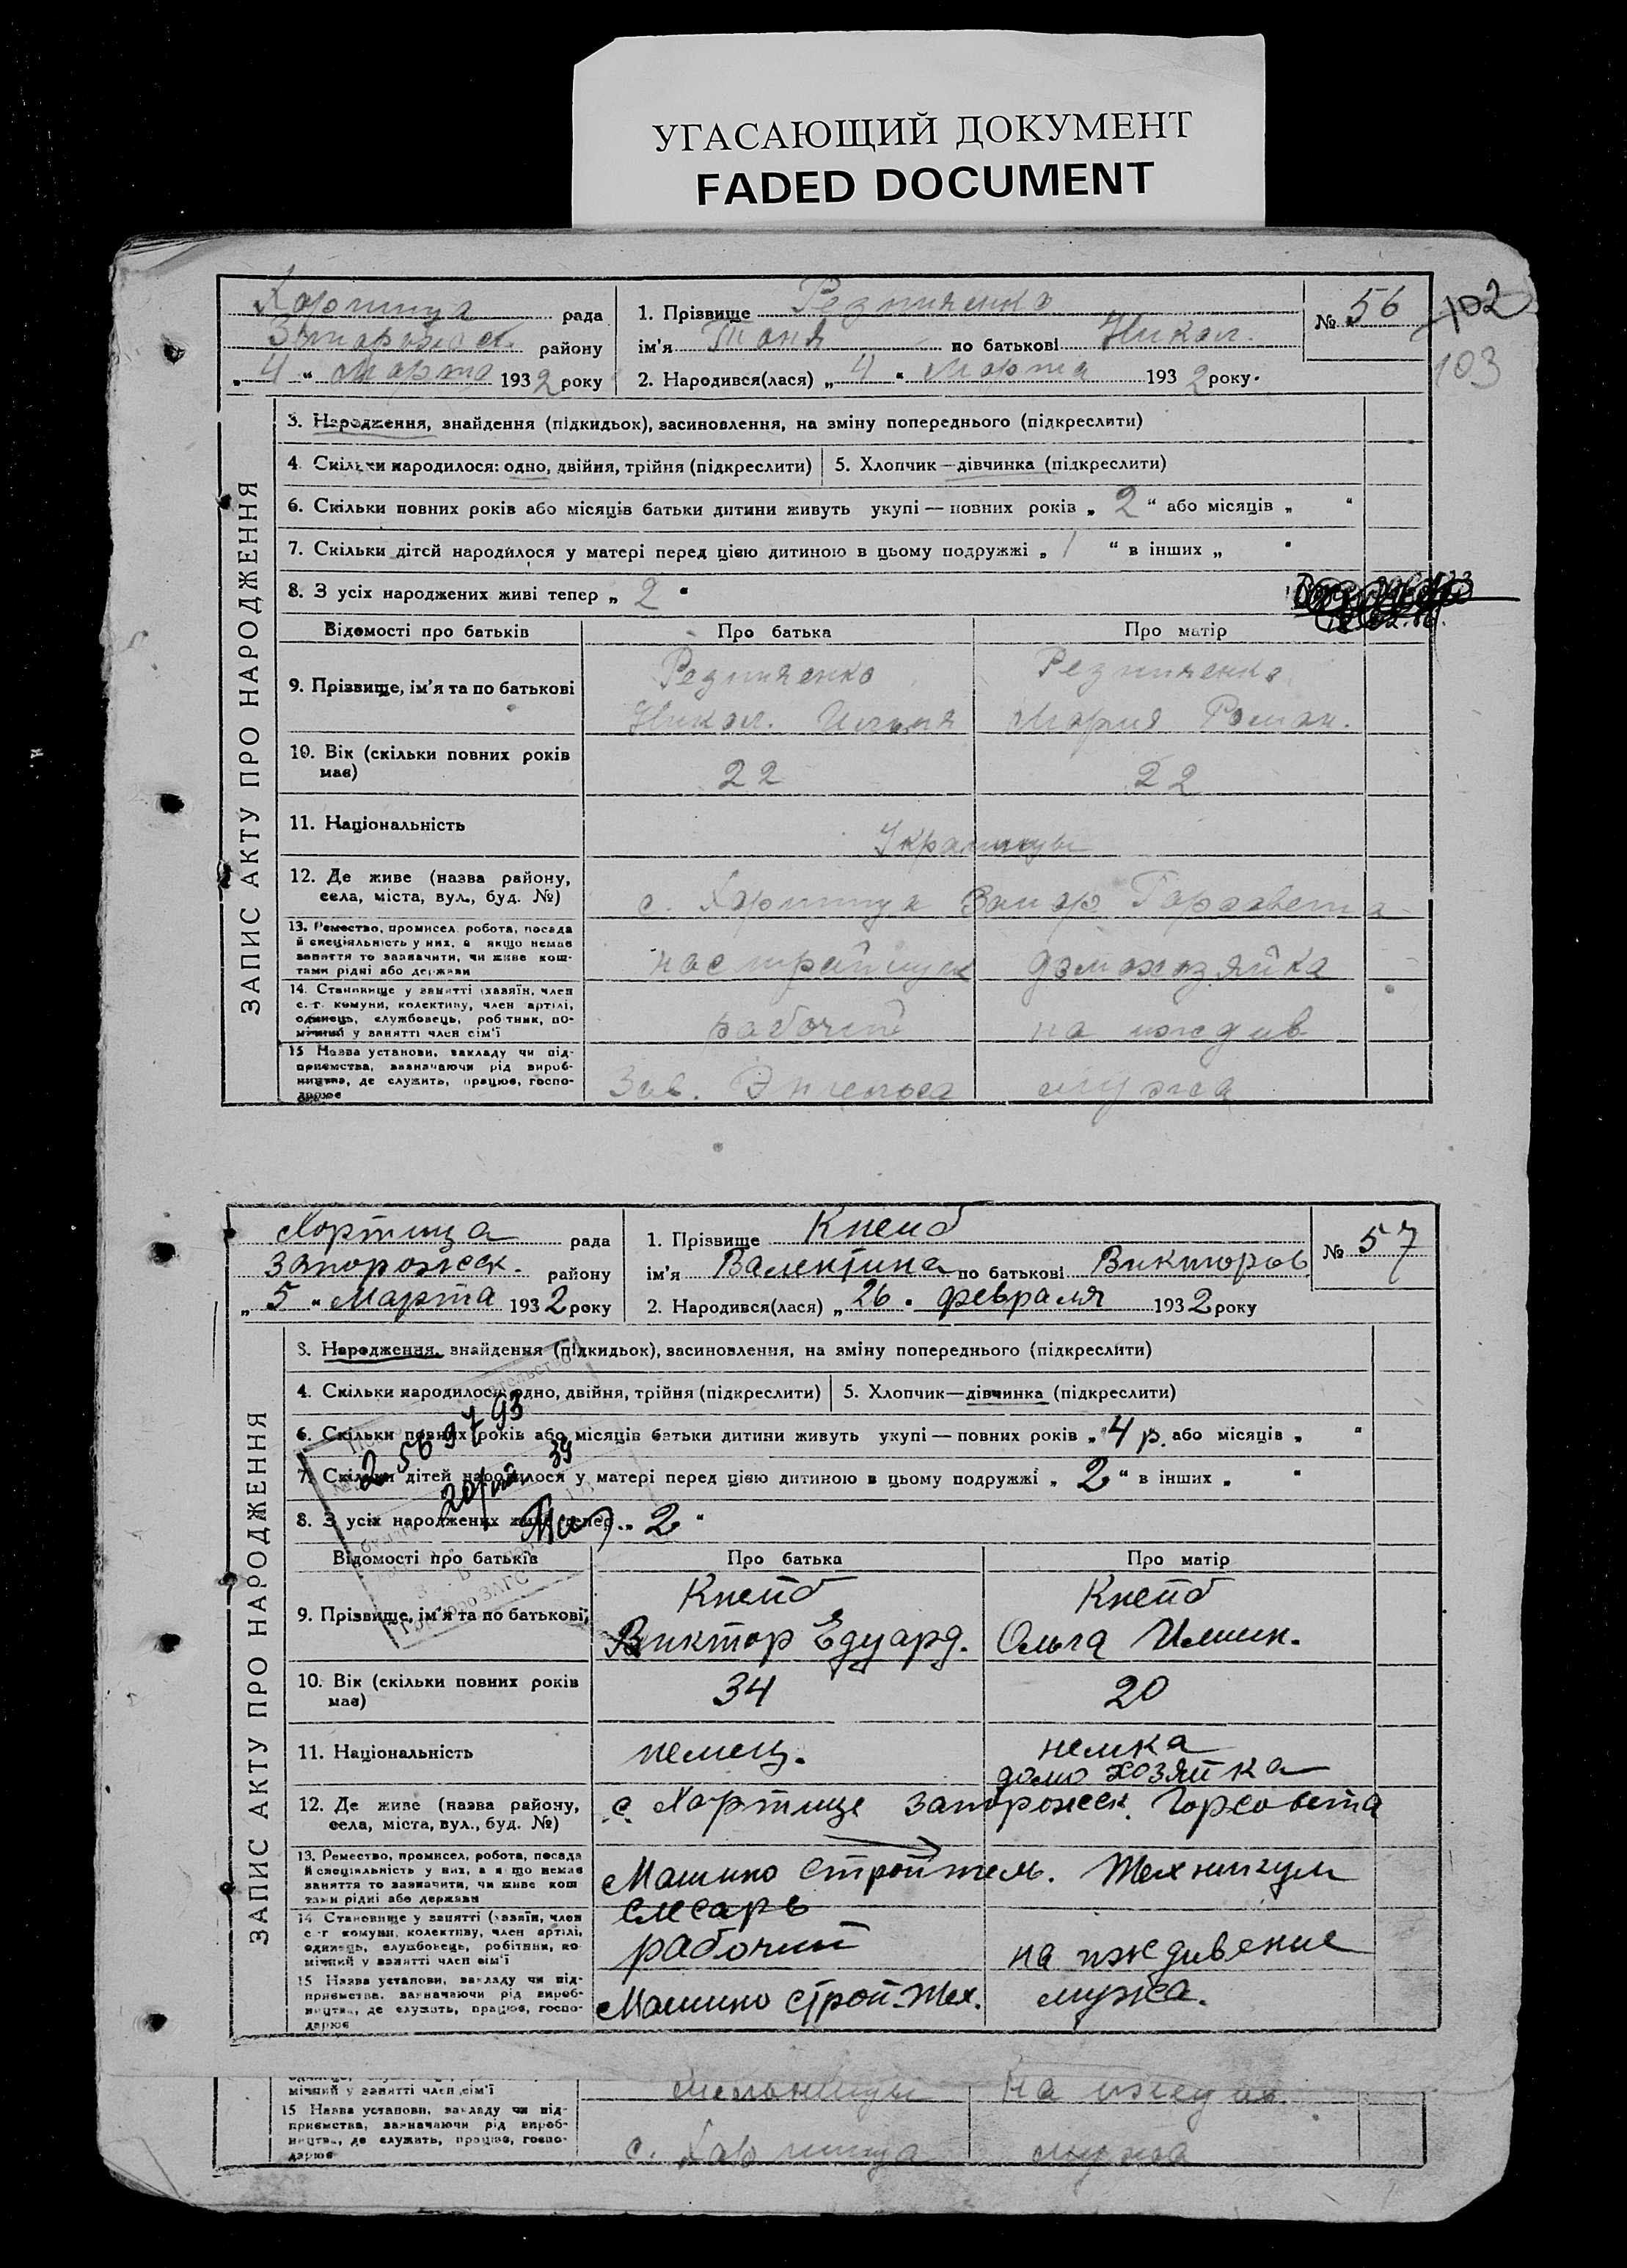 УГАСАЮЩИЙ ДОКУМЕНТ
FADED DOCUMENT
Хортица рада
района району
„ 4 “ Марта 1932 року
1. Прізвище
ім'я Таня по батькові Никол.
2. Народився(лася) „ 4 “ Марта 1932 року.
№ 56
102
103
ЗАПИС АКТУ ПРО НАРОДЖЕННЯ
3. Народження, знайдення (підкидьок), засиновлення, на зміну попереднього (підкреслити)
4. Скільки народилося: одно, двійня, трійня (підкреслити) 5. Хлопчик — дівчинка (підкреслити)
6. Скільки повних років або місяців батьки дитини живуть укупі — повних років „ 2 “ або місяців „ “
7. Скільки дітей народилося у матері перед цією дитиною в цьому подружжі „ 1 “ в інших „ “
8. З усіх народжених живі тепер „ 2 “
Відомості про батьків Про батька Про матір
9. Прізвище, ім'я та по батькові
Никол. Мария Роман.
10. Вік (скільки повних років має) 22 22
11. Національність Украинцы
12. Де живе (назва району, села, міста, вул., буд. №) с. Хортица Запор. Горсовета
13. Ремество, промисел, робота, посада й спеціяльність у них, а якщо немає заняття то зазначити, чи живе коштами рідні або держави домохозяйка
14. Становище у занятті (хазяїн, член с.-г. комуни, колективу, член артілі, одинець, службовець, робітник, помічний у занятті член сім'ї рабочий на иждив
15 Назва установи, закладу чи підприємства, зазначаючи рід виробництва, де служить, працює, господарює Зав. Энгельса мужа
Хортица рада
Запорожск. району
„ 5 “ Марта 1932 року
1. Прізвище Кнейб
ім'я Валентина по батькові Викторов
2. Народився(лася) „ 26 “ февраля 1932 року
№ 57
ЗАПИС АКТУ ПРО НАРОДЖЕННЯ
3. Народження, знайдення (підкидьок), засиновлення, на зміну попереднього (підкреслити)
4. Скільки народилося: одно, двійня, трійня (підкреслити) 5. Хлопчик — дівчинка (підкреслити)
6. Скільки повних років або місяців батьки дитини живуть укупі — повних років „ 4 р. або місяців „ “
7. Скільки дітей народилося у матері перед цією дитиною в цьому подружжі „ 2 “ в інших „ “
8. З усіх народжених живі тепер „ 2 “
Відомості про батьків Про батька Про матір
9. Прізвище, ім'я та по батькові Кнейб Кнейб
Виктор Едуард. Ольга
10. Вік (скільки повних років має) 34 20
11. Національність немец. немка
домохозяйка
12. Де живе (назва району, села, міста, вул., буд. №) с. Хортице Запорожск. Горсовета
13. Ремество, промисел, робота, посада й спеціяльність у них, а якщо немає заняття то зазначити, чи живе коштами рідні або держави Машино строитель. Техникум
слесарь
14 Становище у занятті (хазяїн, член с.-г комуни, колективу, член артілі, одинець, службовець, робітник, помічний у занятті член сім'ї рабочий на иждивение
15 Назва установи, закладу чи підприємства, зазначаючи рід виробництва, де служить, працює, господарює Машино строй. Тех. мужа.
мічний у занятті член сім'ї на иждив.
15 Назва установи, закладу чи підприємства, зазначаючи рід виробництва, де служить, працює, господарює с. Хортица мужа